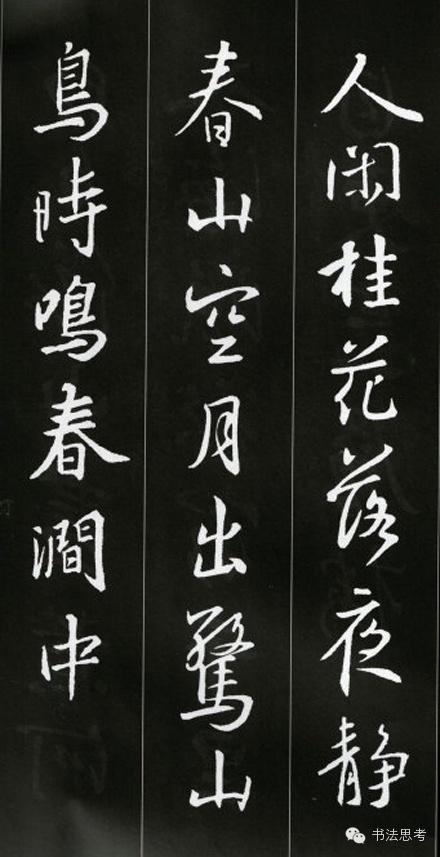 人閑桂花落夜静
春山空月出驚山
鳥時鳴春澗中
书法思考